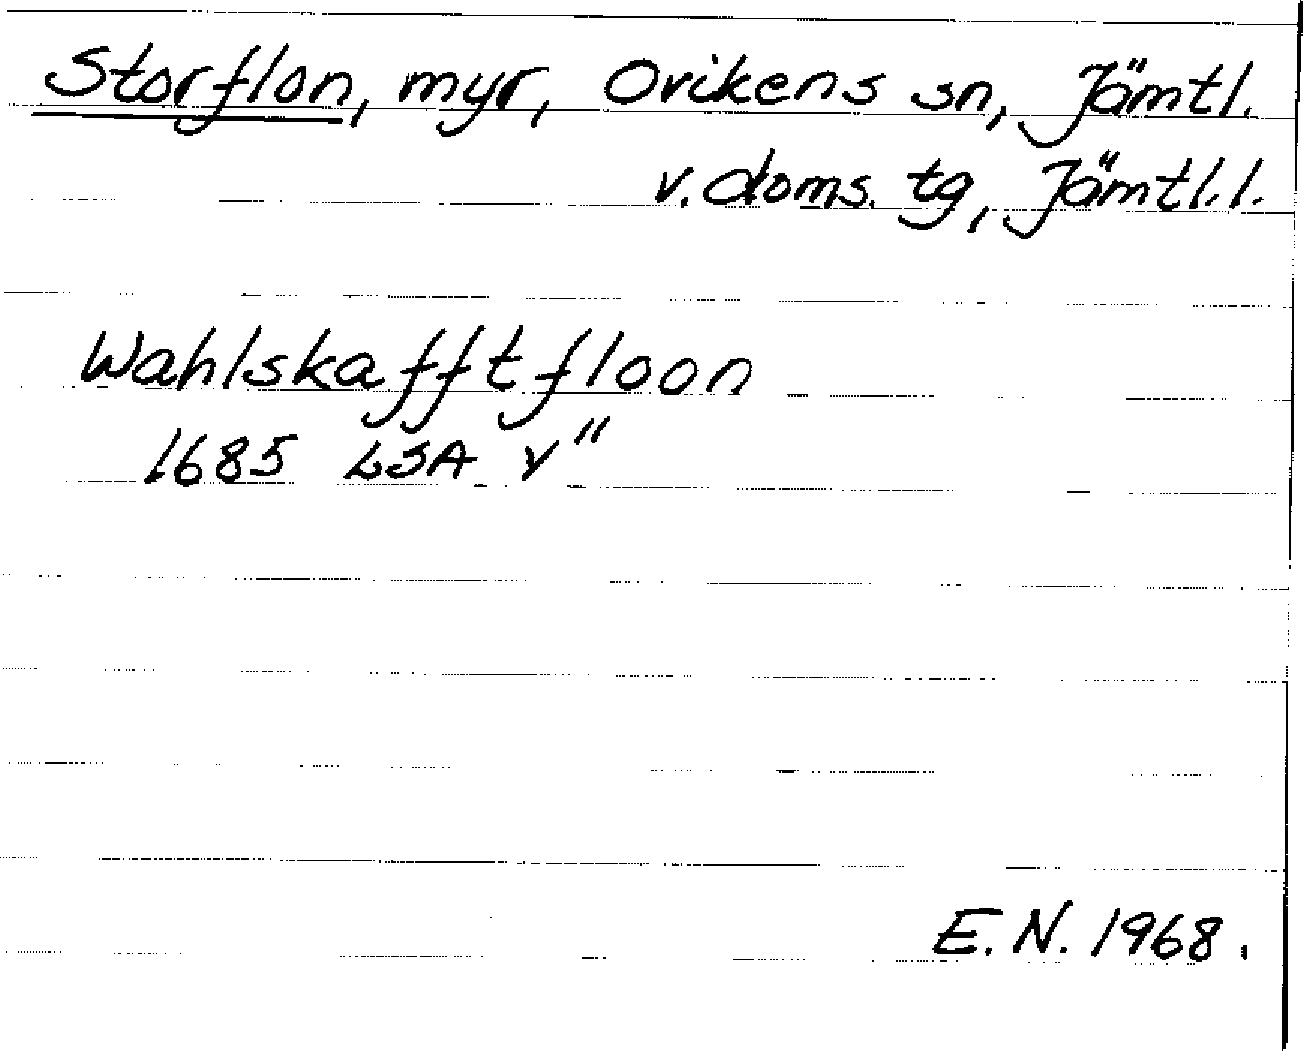 Storflon, myr, Ovikens sn, Jämtl.
v. doms. tg, Jämtl.l.
Wahlskafftfloon
1685 LSA V"
E.N. 1968.